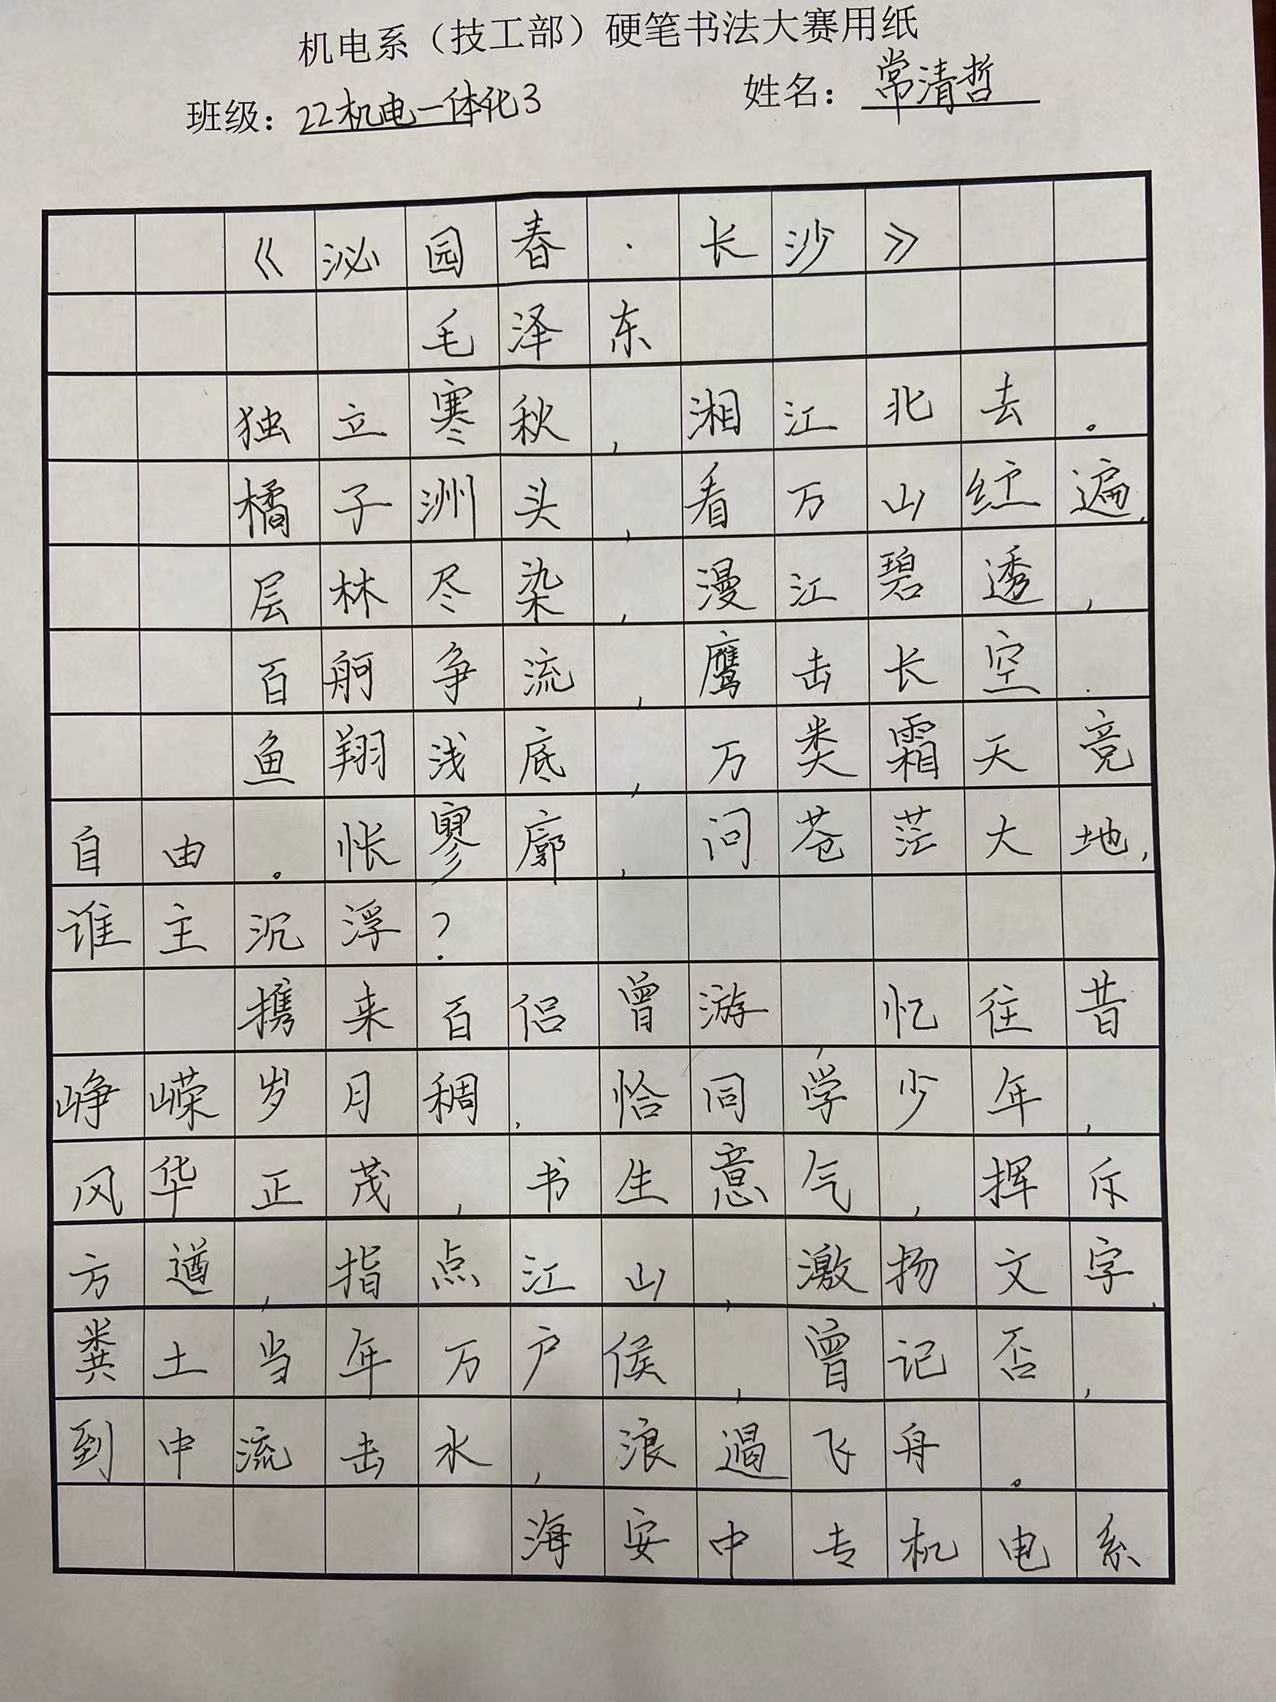 机电系（技工部）硬笔书法大赛用纸
班级：22机电一体化3 姓名：常清哲
《沁园春·长沙》
毛泽东
独立寒秋，湘江北去。
橘子洲头，看万山红遍，
层林尽染，漫江碧透，
百舸争流，鹰击长空.
鱼翔浅底，万类霜天竞
自由。怅寥廓，问苍茫大地，
谁主沉浮？
携来百侣曾游 忆往昔
峥嵘岁月稠，恰同学少年，
风华正茂，书生意气，挥斥
方遒，指点江山，激扬文字，
粪土当年万户侯，曾记否，
到中流击水，浪遏飞舟。
海安中专机电系